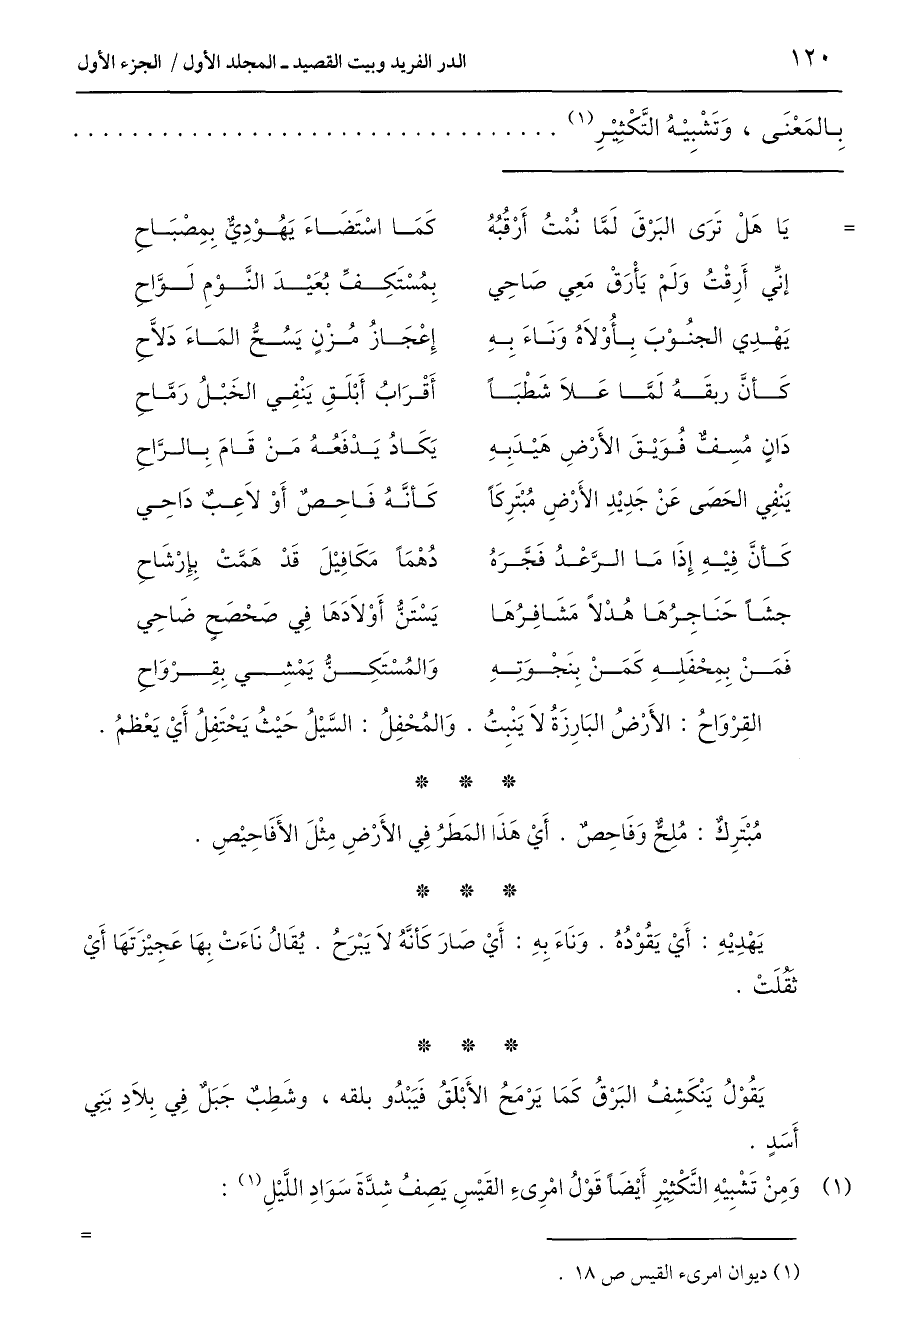 ١٢٠ الدر الفريد وبيت القصيد ـ المجلد الأول / الجزء الأول
بِالمَعْنَى ، وَتَشْبِيْهُ التَّكْثِيْرِ(١) . . . . . . . . . . . . . . . . . . . . . . . . . . . . . . . . .
= يَا هَلْ تَرَى البَرْقَ لَمَّا نُمْتُ أَرْقُبُهُ كَمَا اسْتَضَاءَ يَهُوْدِيٌّ بِمِصْبَاحِ
إنِّي أَرِقْتُ وَلَمْ يَأْرَقْ مَعِي صَاحِي بِمُسْتَكِفٍّ بُعَيْدَ النَّوْمِ لَوَّاحِ
يَهْدِي الجنُوْبَ بِأُوْلاَهُ وَنَاءَ بِهِ إعْجَازُ مُزْنٍ يَسُحُّ المَاءَ دَلاَّحِ
كَأنَّ ريقَهُ لَمَّا عَلاَ شَطْبَاً أَقْرَابُ أَبْلَقِ يَنْفِي الخَيْلُ رَمَّاحِ
دَانٍ مُسِفٌّ فُوَيْقَ الأَرْضِ هَيْدَبِهِ يَكَادُ يَدْفَعُهُ مَنْ قَامَ بِالرَّاحِ
يَنْفِي الحَصَى عَنْ جَدِيْدِ الأَرْضِ مُبْتَرِكَاً كَأنَّهُ فَاحِصٌ أَوْ لاَعِبٌ دَاحِي
كَأنَّ فِيْهِ إِذَا مَا الرَّعْدُ فَجَّرَهُ دُهْمَاً مَكَافِيْلَ قَدْ هَمَّتْ بِإِرْشَاحِ
جشَّاً حَنَاجِرُهَا هُدْلاً مَشَافِرُهَا يَسْتَنُّ أَوْلاَدَهَا فِي صَحْصَحٍ ضَاحِي
فَمَنْ بِمِحْفَلِهِ كَمَنْ بِنَجْوَتِهِ وَالمُسْتَكِنُّ يَمْشِي بِقِرْوَاحِ
القِرْوَاحُ : الأَرْضُ البَارِزَةُ لاَ يَنْبِتُ . وَالمُحْفِلُ : السَّيْلُ حَيْثُ يَحْتَفِلُ أَيْ يَعْظمُ .
* * *
مُبْتَرِكٌ : مُلِحٌّ وَفَاحِصٌ . أَيْ هَذَا المَطَرُ فِي الأَرْضِ مِثْلَ الأَفَاحِيْصِ .
* * *
يَهْدِيْهِ : أَيْ يَقُوْدُهُ . وَنَاءَ بِهِ : أَيْ صَارَ كَأنَّهُ لاَ يَبْرَحُ . يُقَالُ نَاءَتْ بِهَا عَجِيْزَتَهَا أَيْ
ثَقُلَتْ .
* * *
يَقُوْلُ يَنْكَشِفُ البَرْقُ كَمَا يَرْمَحُ الأَبْلَقُ فَيَبْدُو بلقه ، وشَطِبٌ جَبَلٌ فِي بِلاَدِ بَنِي
أَسَدٍ .
(١) وَمِنْ تَشْبِيْهِ التَّكْثِيْرِ أَيْضَاً قَوْلُ امْرِىءِ القَيْسِ يَصِفُ شِدَّةَ سَوَادِ اللَّيْلِ(١) :
=
(١) ديوان امرىء القيس ص ١٨ .